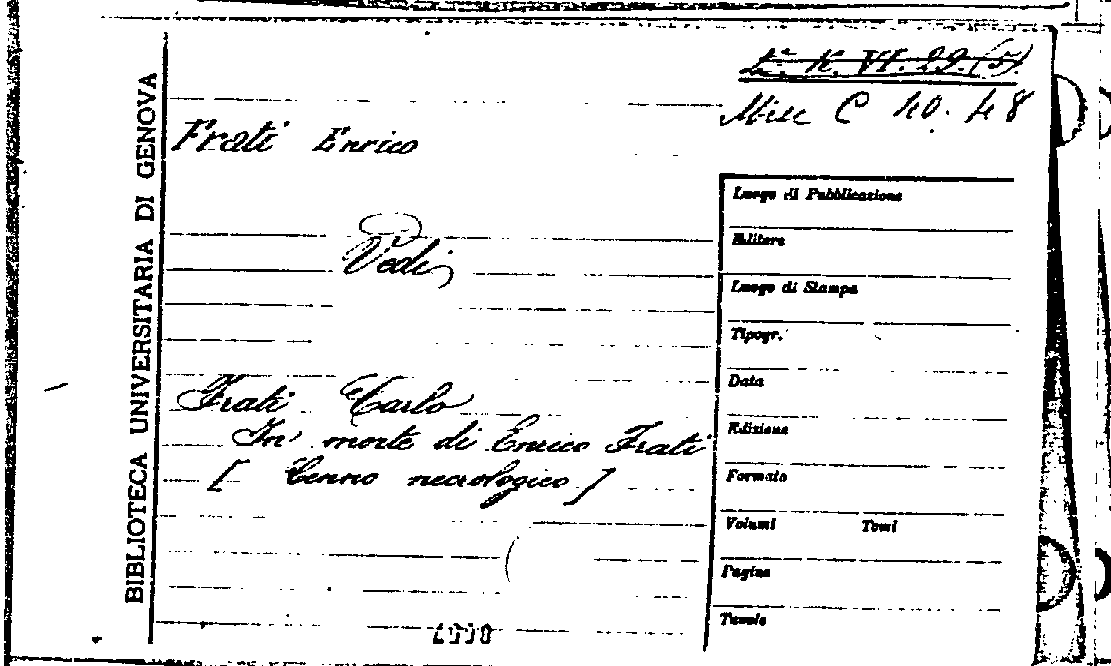 L.a K. VI. 29. (5).
Misc C 40. 48
BIBLIOTECA UNIVERSITARIA DI GENOVA
Frati Enrico
Vedi
Frati Carlo
In morte di Enrico Frati
[ Cenno necrologico ]
Luogo di Pubblicazione
Editore
Luogo di Stampa
Tipogr.
Data
Edizione
Formato
Volumi Tomi
Pagine
Tavole